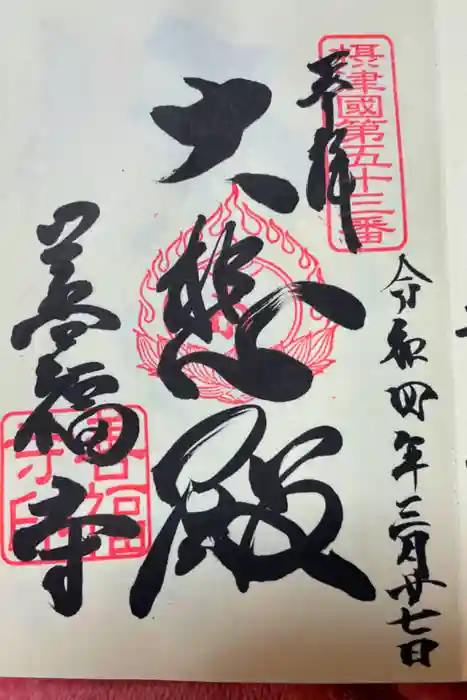 摂津國第五十三番
奉拝
令和四年三月廿七日
大悲殿
善福寺
善福
寺印